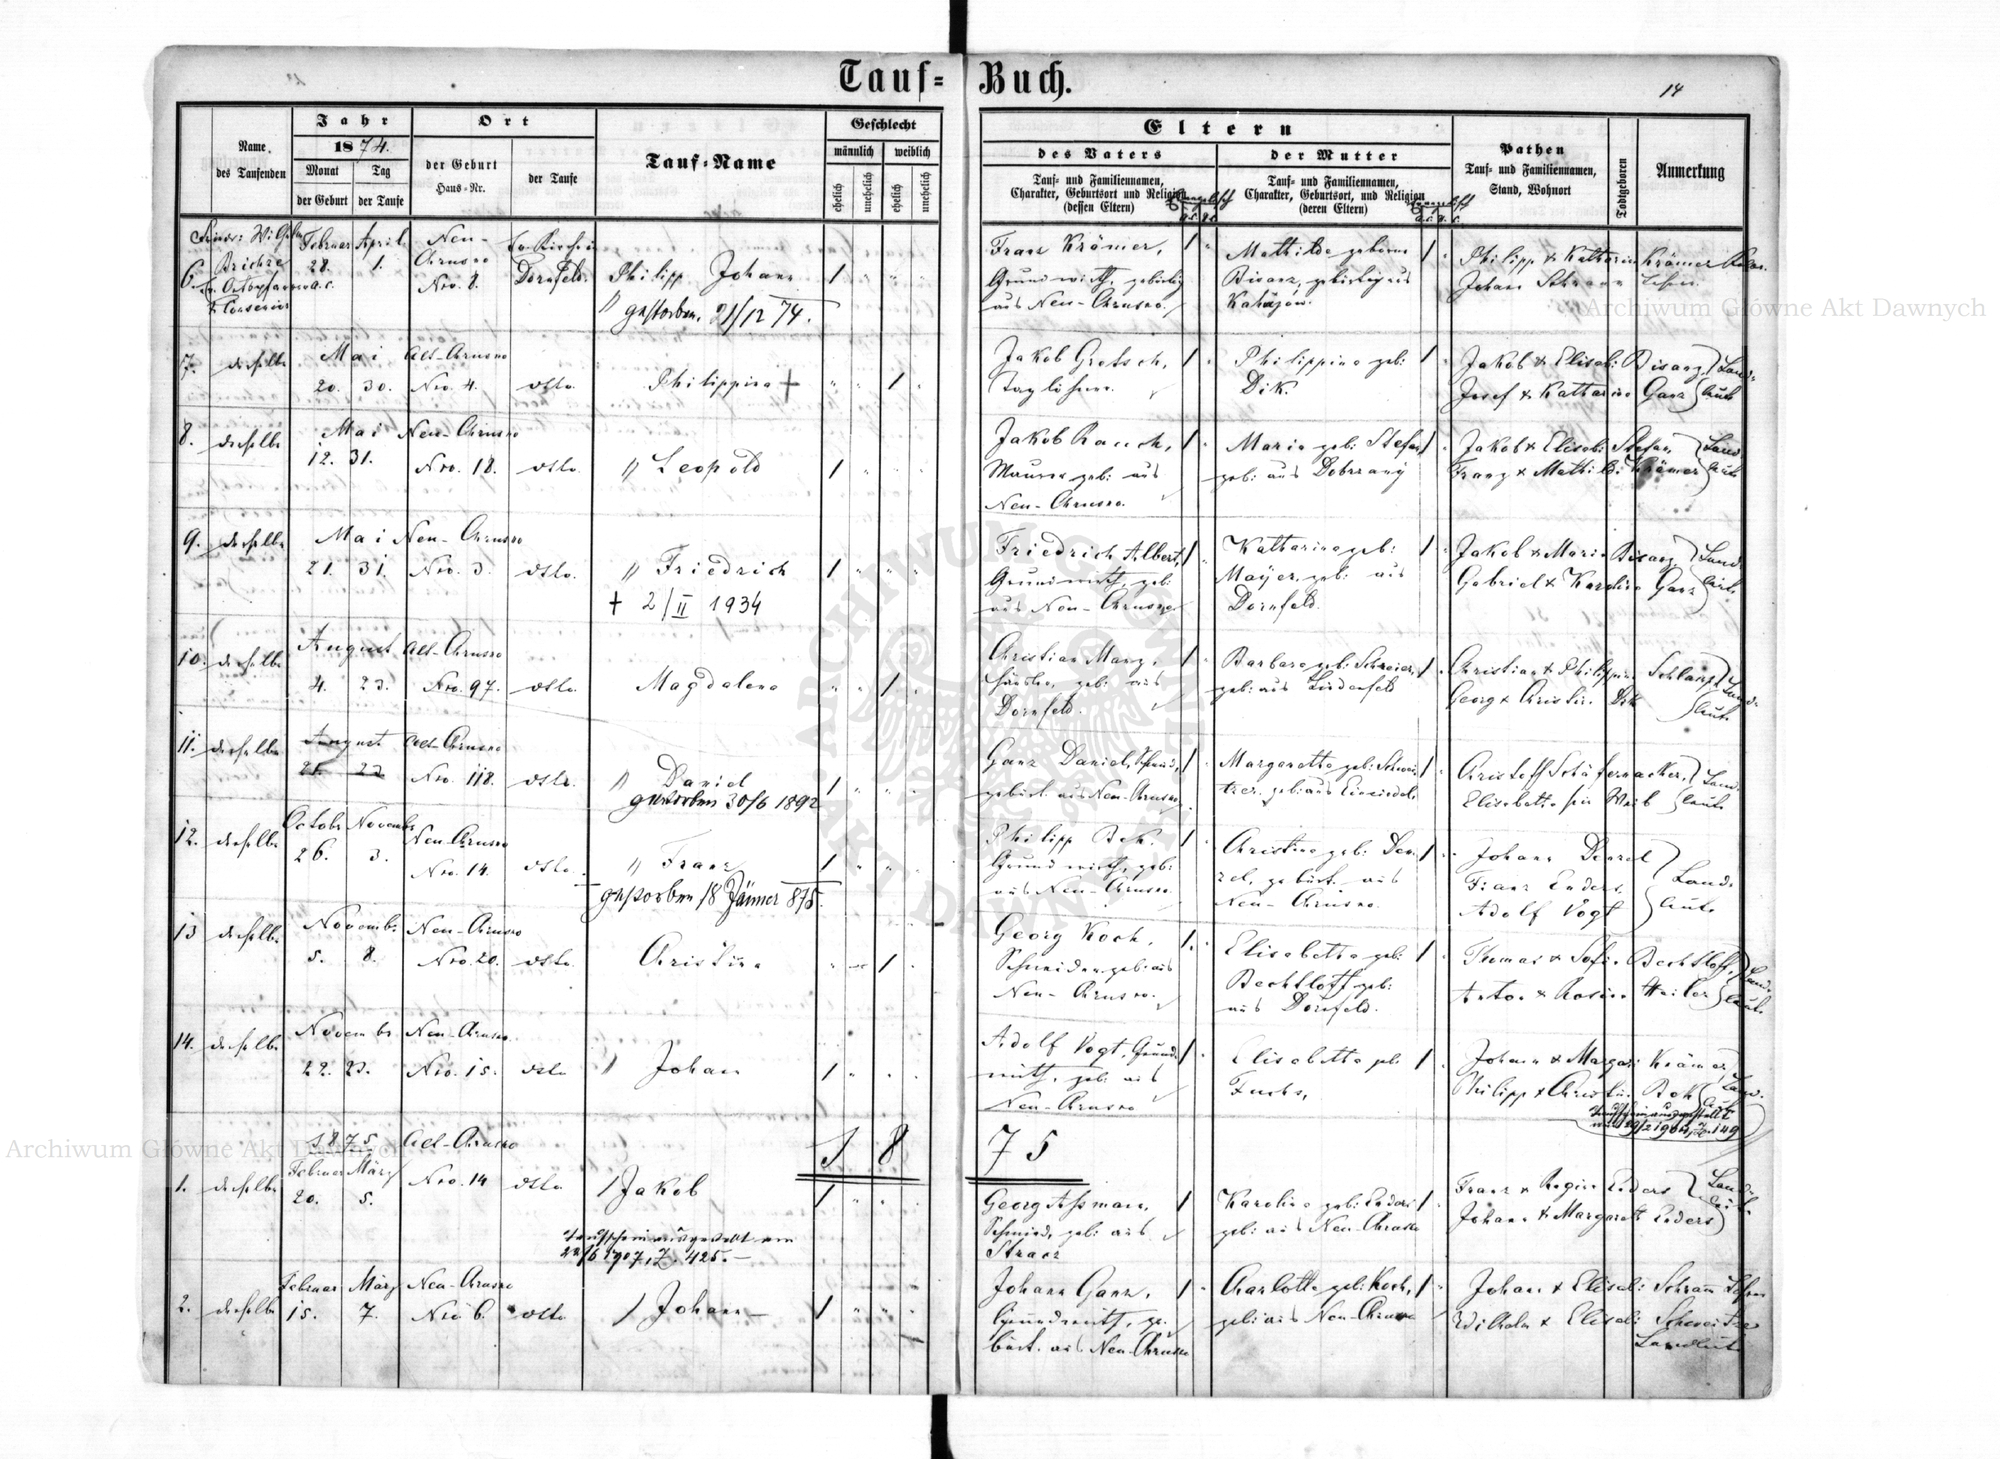 Tauf-Buch.
14
Name des Taufenden
Jahr
1874.
Monat der Geburt
Tag der Taufe
Ort
der Geburt Haus-Nr.
der Taufe
Tauf-Name
Geschlecht
männlich
weiblich
ehelich
unehelich
ehelich
unehelich
Eltern
des Vaters
Tauf- und Familiennamen,
Charakter, Geburtsort und Religion
(dessen Eltern)
der Mutter
Tauf- und Familiennamen,
Charakter, Geburtsort, und Religion
(deren Eltern)
Pathen
Tauf- und Familiennamen,
Stand, Wohnort
Todtgeboren
Anmerkung
6.
Februar April
28. 1.
Neu-
Chrusno
Nro. 8.
Ev. Kirche in
Dornfeld.
Philipp Johann
gestorben, 21/12 74.
Franz Krämer,
Grundwirth, gebürtig
aus Neu-Chrusno.
Mathilde geborne
Bisanz, gebürtig aus
Philipp & Katharina Krämer
Johann Schramm Lehrer.
7. derselbe
Mai
20. 30.
Alt-Chrusno
Nro. 4.
dsto.
Philippina +
Jakob Gretsch,
Taglöhner.
Philippina geb:
Dik.
Jakob & Elisab: Bisanz,
Josef & Katharina Ganz
Landleute
8. derselbe
Mai
12. 31.
Neu-Chrusno
Nro. 18.
dsto.
Leopold
Jakob Rauch,
Maurer geb: aus
Neu-Chrusno.
Maria geb: Stefan,
geb: aus Dobrzany
Jakob & Elisab: Stefan,
Franz & Mathild: Krämer
Landleute
9. derselbe
Mai
21. 31.
Neu-Chrusno
Nro. 3.
dsto.
Friedrich
+ 2/II 1934
Friedrich Albert,
Grundwirth, geb:
aus Neu-Chrusno
Katharina geb:
Mayer, geb: aus
Dornfeld.
Jakob & Maria Bisanz,
Gabriel & Karolina Ganz
Landleute
10. derselbe
August
4. 23.
Alt-Chrusno
Nro. 97.
dsto.
Magdalena
Christian Manz,
geb: aus
Dornfeld.
Barbara geb: Schreier,
geb: aus Lindenfeld
Christian & Philippin: Schlanz
Georg & Christin: Dik
Landleute
11. derselbe
August
21. 23
Alt-Chrusno
Nro. 118.
dsto.
Daniel
gestorben 30/6 1892
Ganz Daniel, Schmied,
gebürt. aus Neu-Chrusno.
Margaretta geb: Schweitzer,
geb: aus Einsiedel.
Christoff Schäfernacker,
Elisabetta sein Weib
Landleute
12. derselbe
October November
26. 3.
Neu-Chrusno
Nro. 14.
dsto.
Franz
gestorben 18 Jänner 875.
Philipp Bek.
Grundwirth, geb:
aus Neu-Chrusno.
Christina geb: Denzel,
gebürt. aus
Neu-Chrusno.
Johann Denzel
Franz Enders,
Adolf Vogt
Landleute
13 derselbe
Novemb.
5. 8.
Neu-Chrusno
Nro. 20.
dsto.
Christina
Georg Koch,
Schneider geb: aus
Neu-Chrusno.
Elisabetta geb:
Bechtloff geb:
aus Dornfeld.
Thomas & Sofia Bechtloff,
Anton & Rosina Heiler
Landleute
14. derselbe
November
22. 23.
Neu-Chrusno.
Nro. 15.
dsto
Johan
Adolf Vogt, Grundwirth,
geb: aus
Neu-Chrusno
Elisabetta geb:
Fuchs,
Johann & Margar: Krämer,
Philipp & Christin: Bek
Landleute
1875
1875.
1. derselbe
Februar März
20. 5.
Alt-Chrusno
Nro. 14
dsto.
Jakob
Taufschein ausgestellt am
22/6 1907, Z. 425.
Georg Assmann,
Schmied, geb: aus
Karolina geb: Enders
geb: aus Neu-Chrusno
Franz & Regina Enders
Johann & Margareth Enders
Landleute
2. derselbe
Februar März
15. 7.
Neu-Chrusno
Nro 6.
dsto.
Johann
Johann Ganz,
Grundwirth, ge-
bürt. aus Neu-Chrusno
Charlotta geb: Koch,
geb: aus Neu-Chrusno
Johan & Elisab: Schramm Lehrer
Wilhelm & Elisab: Schweitzer
Landleute
Archiwum Główne Akt Dawnych
Archiwum Główne Akt Dawnych
ARCHIWUM GŁÓWNE AKT DAWNYCH